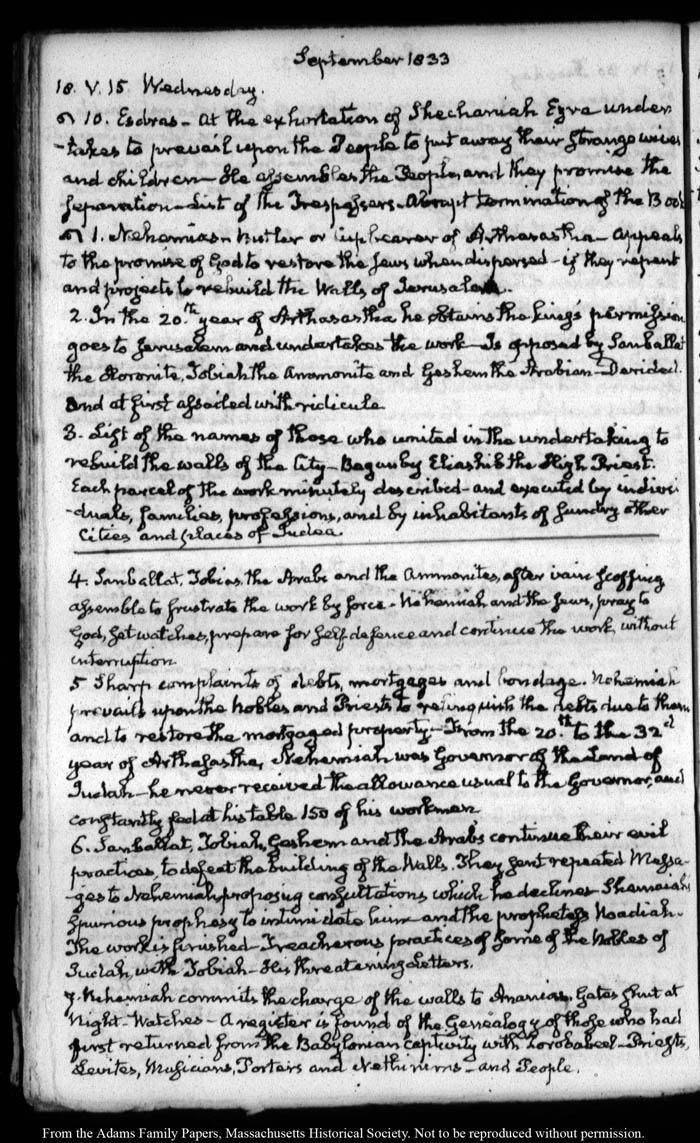 September 1833
18. V. 15 Wednesday.
10. Esdras - At the exhortation of Shechaniah Ezra under
-takes to prevail upon the People to put away their strange wives
and children - He assembles the People, and they promise the
separation - List of the Trespassers - Abrupt termination of the Book
1. Nehemias - Butler or Cupbearer of Arthasastha - Appeals
to the promise of God to restore the Jews when dispersed - if they repent
and projects to rebuild the Walls of Jerusalem.
2. In the 20.th year of Arthasastha he obtains the king's permission
goes to Jerusalem and undertakes the work - Is opposed by Sanballat
the Horonite, Tobiah the Ammonite and Geshem the Arabian - Derided.
and at first assailed with ridicule
3. List of the names of those who united in the undertaking to
rebuild the walls of the City - Begun by Eliashib the High Priest.
Each parcel of the work minutely described - and executed by indivi
-duals, families, professions, and by inhabitants of sundry other
Cities and places of Judea
4. Sanballat, Tobias, the Arabs and the Ammonites, after vain scoffing
assemble to frustrate the work by force - Nehemiah and the Jews, pray to
God, set watches, prepare for self defence and continue the work without
interruption
5 Sharp complaints of debts, mortgages and bondage. Nehemiah
prevails upon the Nobles and Priests to relinquish the debts due to them
and to restore the mortgaged property - From the 20.th to the 32d
year of Arthasastha, Nehemiah was Governor of the Land of
Judah - he never received the allowance usual to the Governor, and
constantly fed at his table 150 of his workmen
6. Sanballat, Tobiah, Geshem and the Arabs continue their evil
practices, to defeat the building of the Walls. They sent repeated Messa-
-ges to Nehemiah proposing consultations which he declines - Shemaiah's
spurious prophesy to intimidate him - and the prophetess Noadiah.
The work is finished - Treacherous practices of some of the Nobles of
Judah, with Tobiah - His threatening Letters.
7. Nehemiah commits the charge of the walls to Ananias. Gates shut at
Night - Watches - A register is found of the Genealogy of those who had
first returned from the Babylonian captivity with Zorobabel - Priests,
Levites, Musicians, Porters and Nethinims - and People.
From the Adams Family Papers, Massachusetts Historical Society. Not to be reproduced without permission.